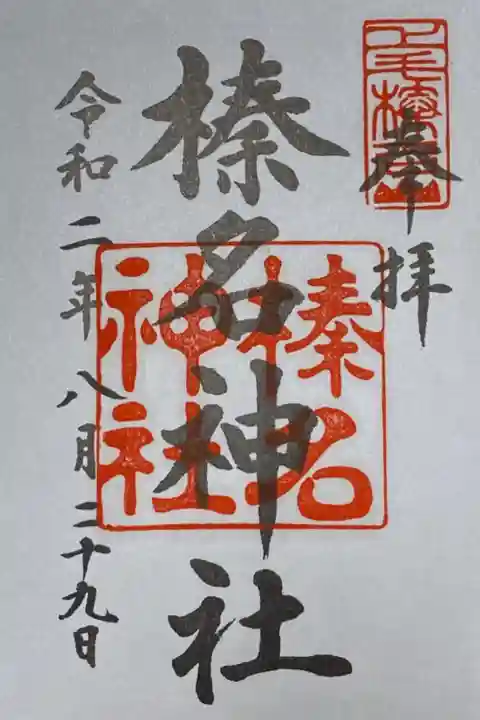 奉拝
榛名神社
令和二年八月二十九日
榛名
神社